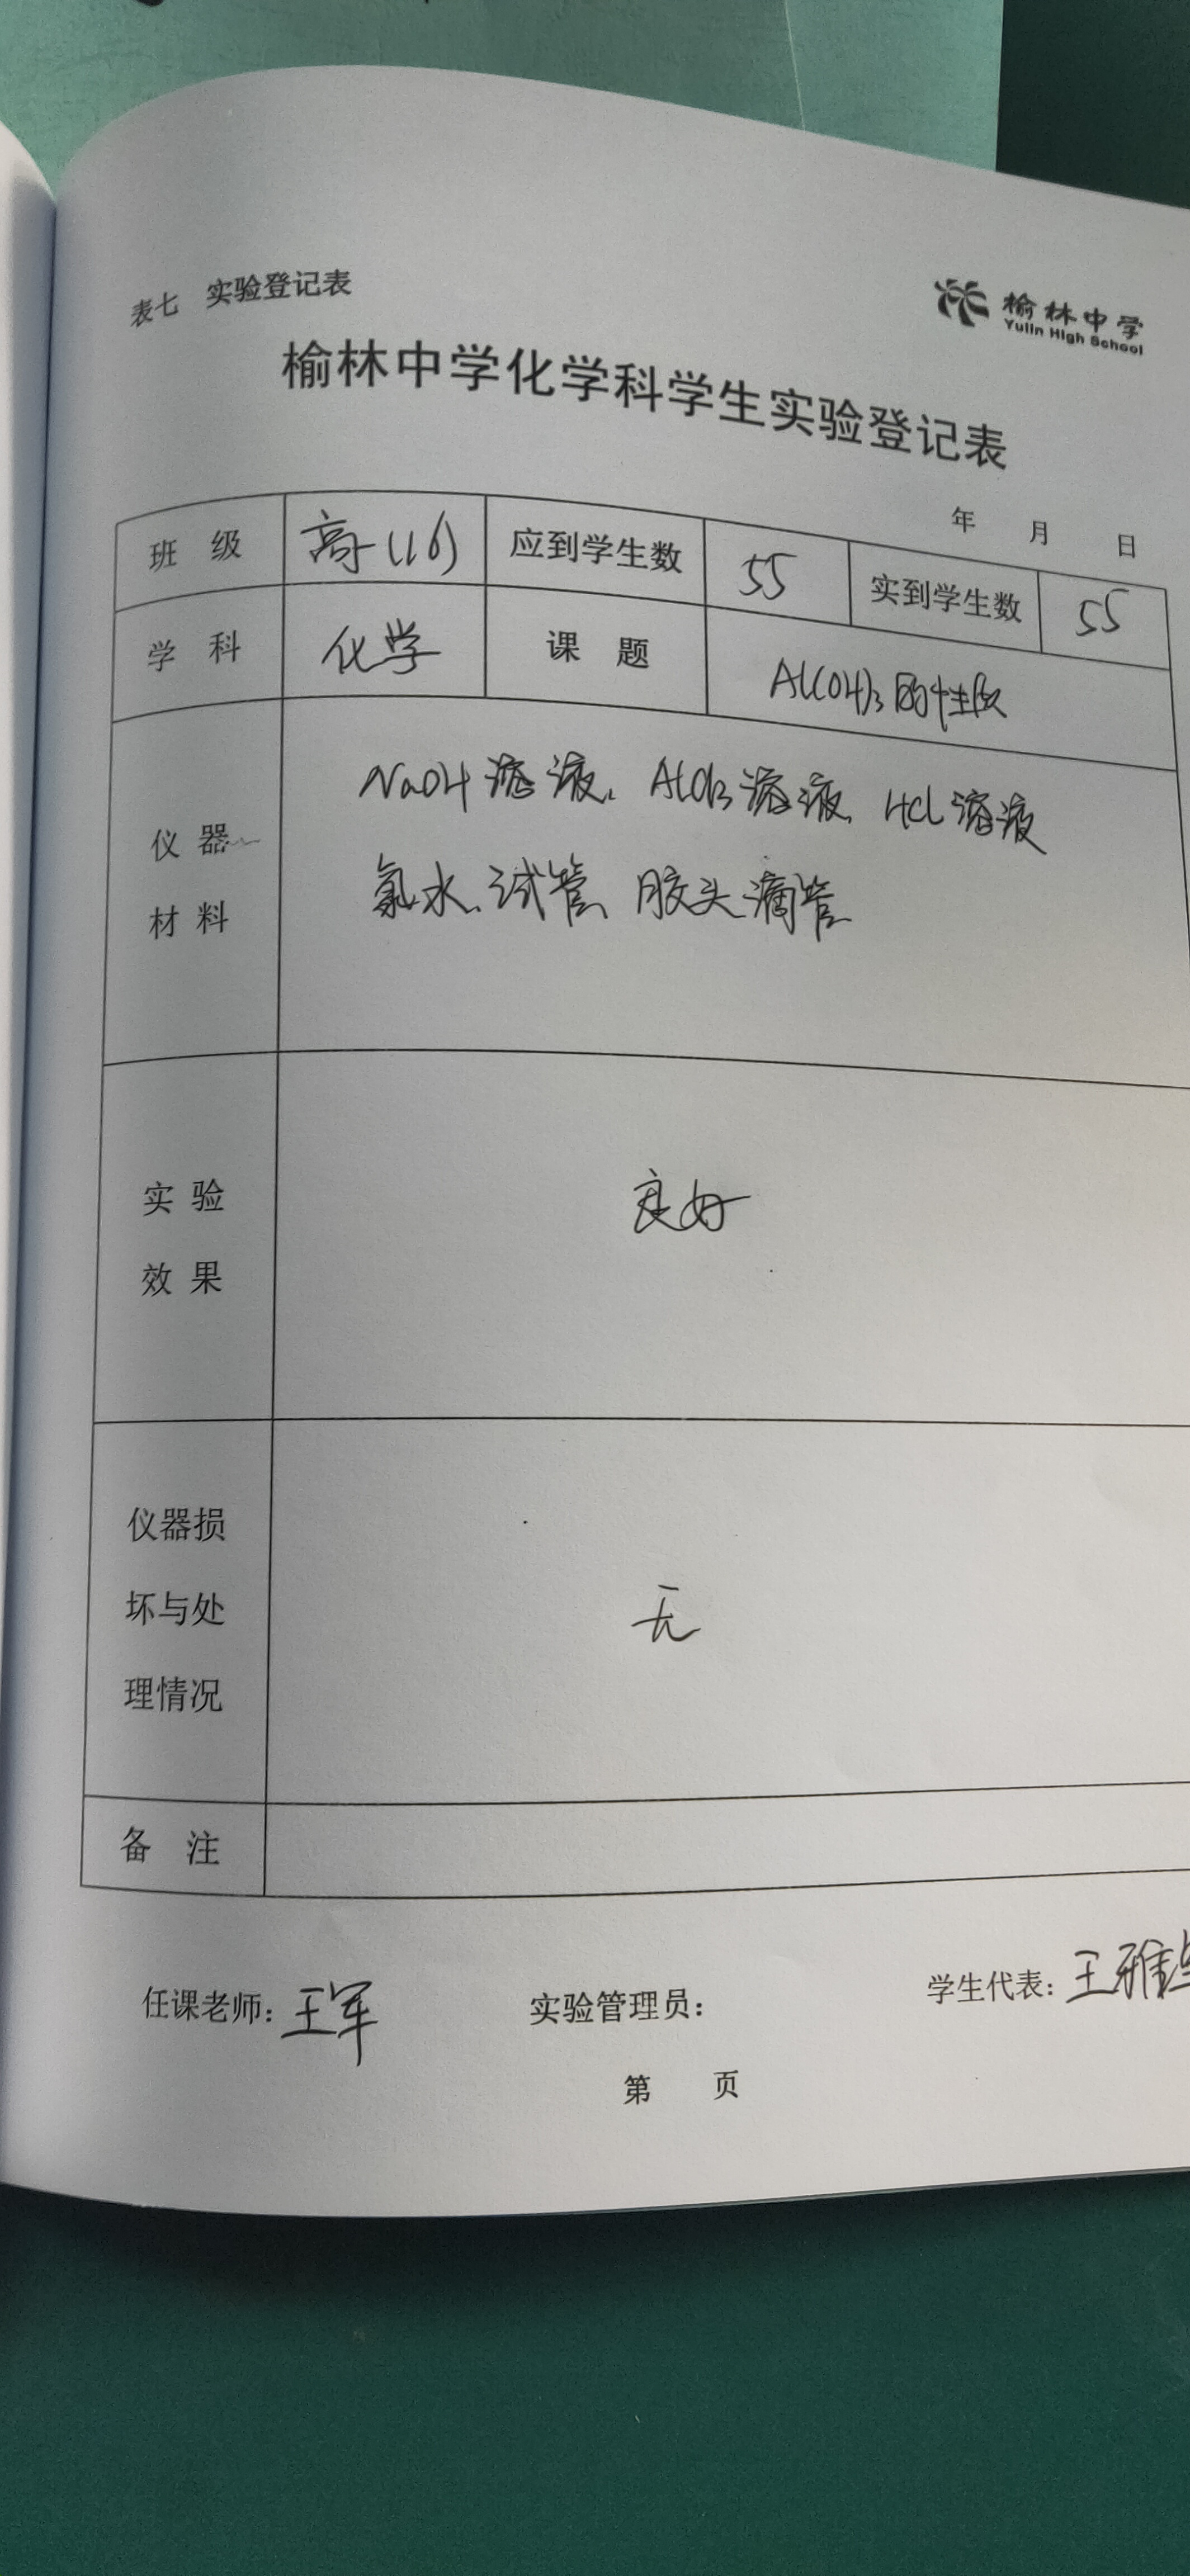 表七 实验登记表
榆林中学
Yulin High School
榆林中学化学科学生实验登记表
年 月 日
班 级 高一(16) 应到学生数 55 实到学生数 55
学 科 化学 课 题 Al(OH)3的性质
仪 器
材 料
NaOH溶液、AlCl3溶液、HCl溶液
氯水、试管、胶头滴管
实 验
效 果
良好
仪器损
坏与处
理情况
无
备 注
任课老师：王军 实验管理员： 学生代表：王雅
第 页